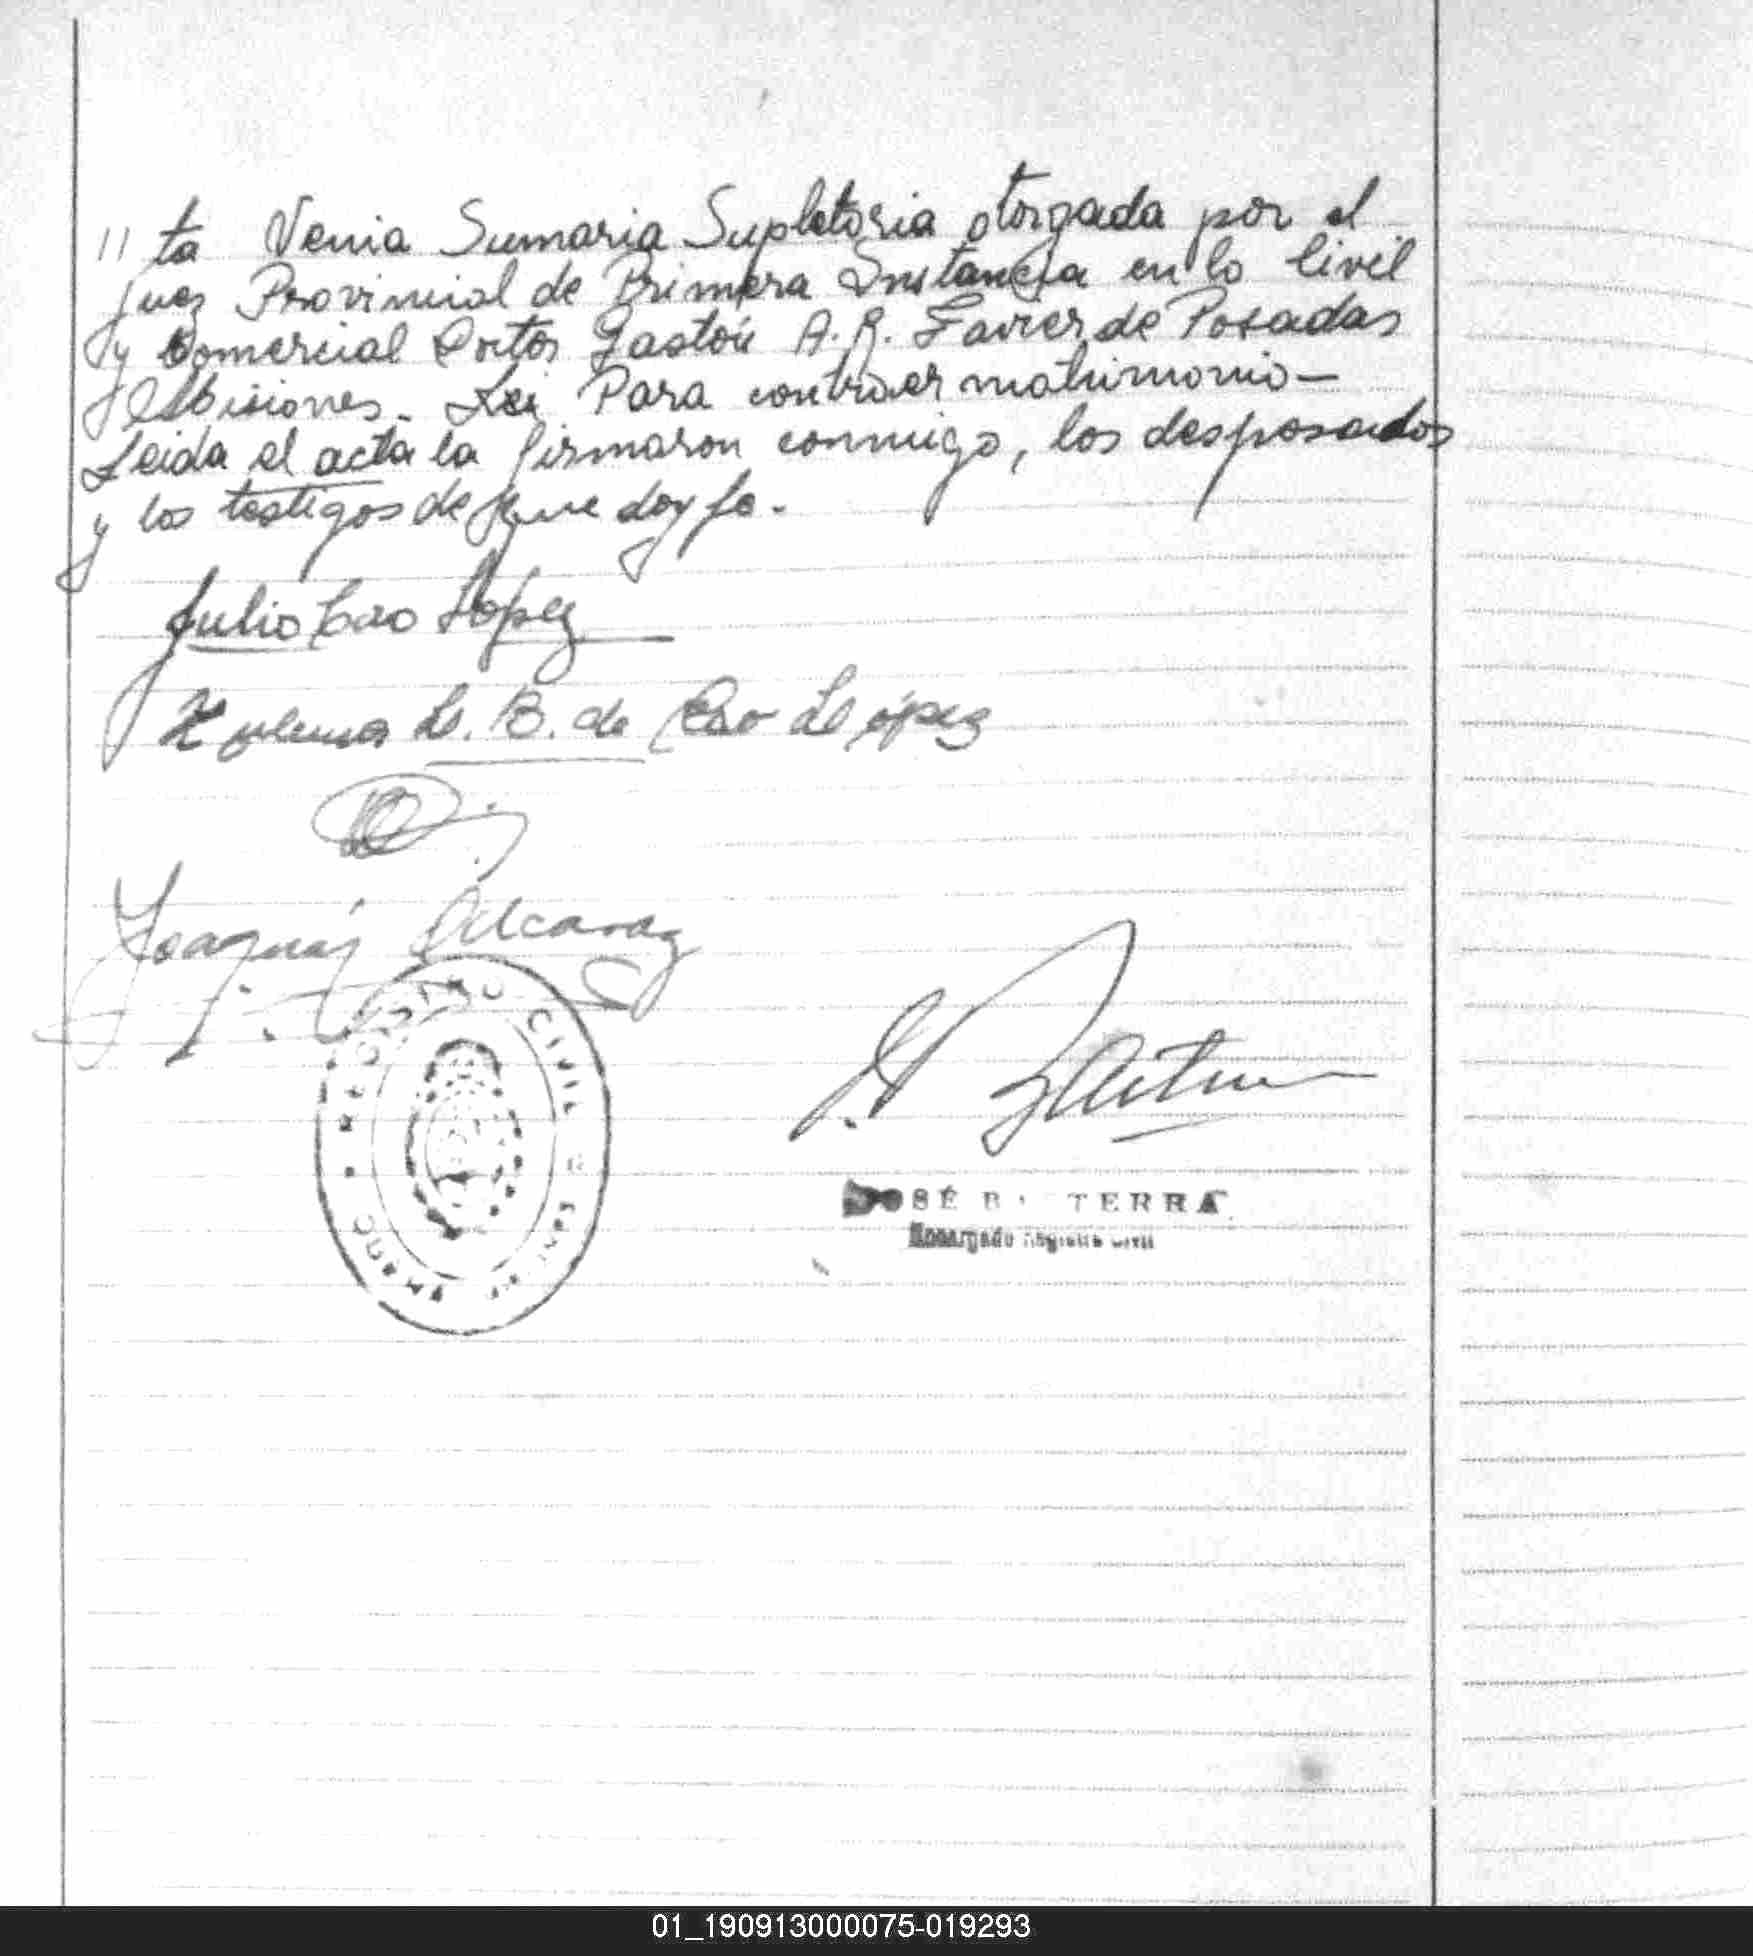 // ta Venia Sumaria Supletoria otorgada por el
Juez Provincial de Primera Instancia en lo Civil
y Comercial Doctor Gastón A. R. Favier de Posadas
Misiones. Para contraer matrimonio—
Leida el acta la firmaron conmigo, los desposados
y los testigos de que doy fe.
Julio Cao López
Zulema L. B. de Cao López
Joaquín Alcaraz
REGISTRO CIVIL
JOSÉ B TERRA
Encargado Registro Civil
01_190913000075-019293